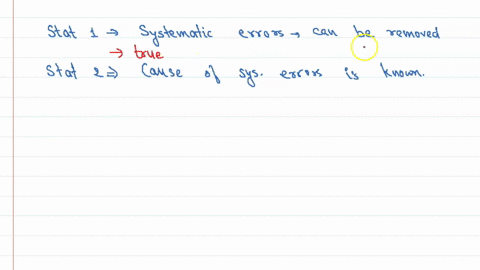 Stat 1 → Systematic errors → can be removed
→ true
Stat 2 ⇒ Cause of sys. errors is known.